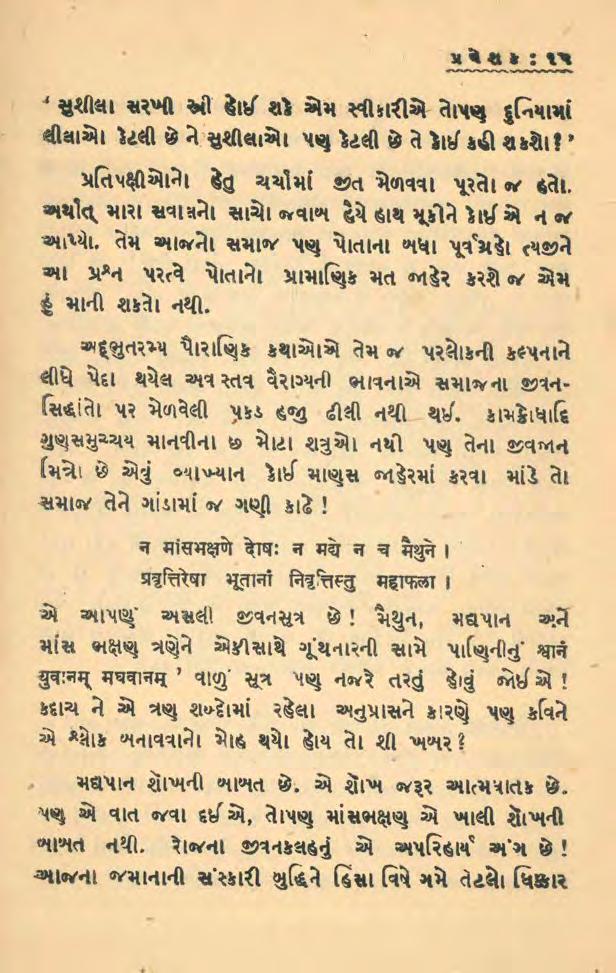 પ્રવેશક : ૧૫
‘ સુશીલા સરખી સ્ત્રી હોઈ શકે એમ સ્વીકારીએ તોપણ દુનિયામાં
લીલાઓ કેટલી છે ને સુશીલાઓ પણ કેટલી છે તે કોઈ કહી શકશો ? ’
પ્રતિપક્ષીઓનો હેતુ ચર્ચામાં જીત મેળવવા પૂરતો જ હતો.
અર્થાત્ મારા સવાલનો સાચો જવાબ હૈયે હાથ મૂકીને કોઈ એ ન જ
આપ્યો. તેમ આજનો સમાજ પણ પોતાના બધા પૂર્વગ્રહો ત્યજીને
આ પ્રશ્ન પરત્વે પોતાનો પ્રામાણિક મત જાહેર કરશે જ એમ
હું માની શકતો નથી.
અદ્ભુતરમ્ય પૌરાણિક કથાઓએ તેમ જ પરલોકની કલ્પનાને
લીધે પેદા થયેલ અવાસ્તવ વૈરાગ્યની ભાવનાએ સમાજના જીવન-
સિદ્ધાંતો પર મેળવેલી પકડ હજી ઢીલી નથી થઈ. કામક્રોધાદિ
ગુણસમુચ્ચય માનવીના છ મોટા શત્રુઓ નથી પણ તેના જીવજાન
મિત્રો છે એવું વ્યાખ્યાન કોઈ માણસ જાહેરમાં કરવા માંડે તો
સમાજ તેને ગાંડામાં જ ગણી કાઢે !
न मांसभक्षणे दोषः न मद्ये न च मैथुने ।
प्रवृत्तिरेषा भूतानां निवृत्तिस्तु महाफला ।
એ આપણું અસલી જીવનસૂત્ર છે ! મૈથુન, મદ્યપાન અને
માંસ ભક્ષણ ત્રણેને એકીસાથે ગૂંથનારની સામે પાણિનીનું श्वानं
युवानम् मघवानम् ’ વાળું સૂત્ર પણ નજરે તરતું હોવું જોઈએ !
કદાચ ને એ ત્રણ શબ્દોમાં રહેલા અનુપ્રાસને કારણે પણ કવિને
એ શ્લોક બનાવવાનો મોહ થયો હોય તો શી ખબર ?
મદ્યપાન શોખની બાબત છે. એ શોખ જરૂર આત્મઘાતક છે.
પણ એ વાત જવા દઈએ, તોપણ માંસભક્ષણ એ ખાલી શોખની
બાબત નથી. રોજના જીવનકલહનું એ અપરિહાર્ય અંગ છે !
આજના જમાનાની સંસ્કારી બુદ્ધિને હિંસા વિષે ગમે તેટલો ધિક્કાર